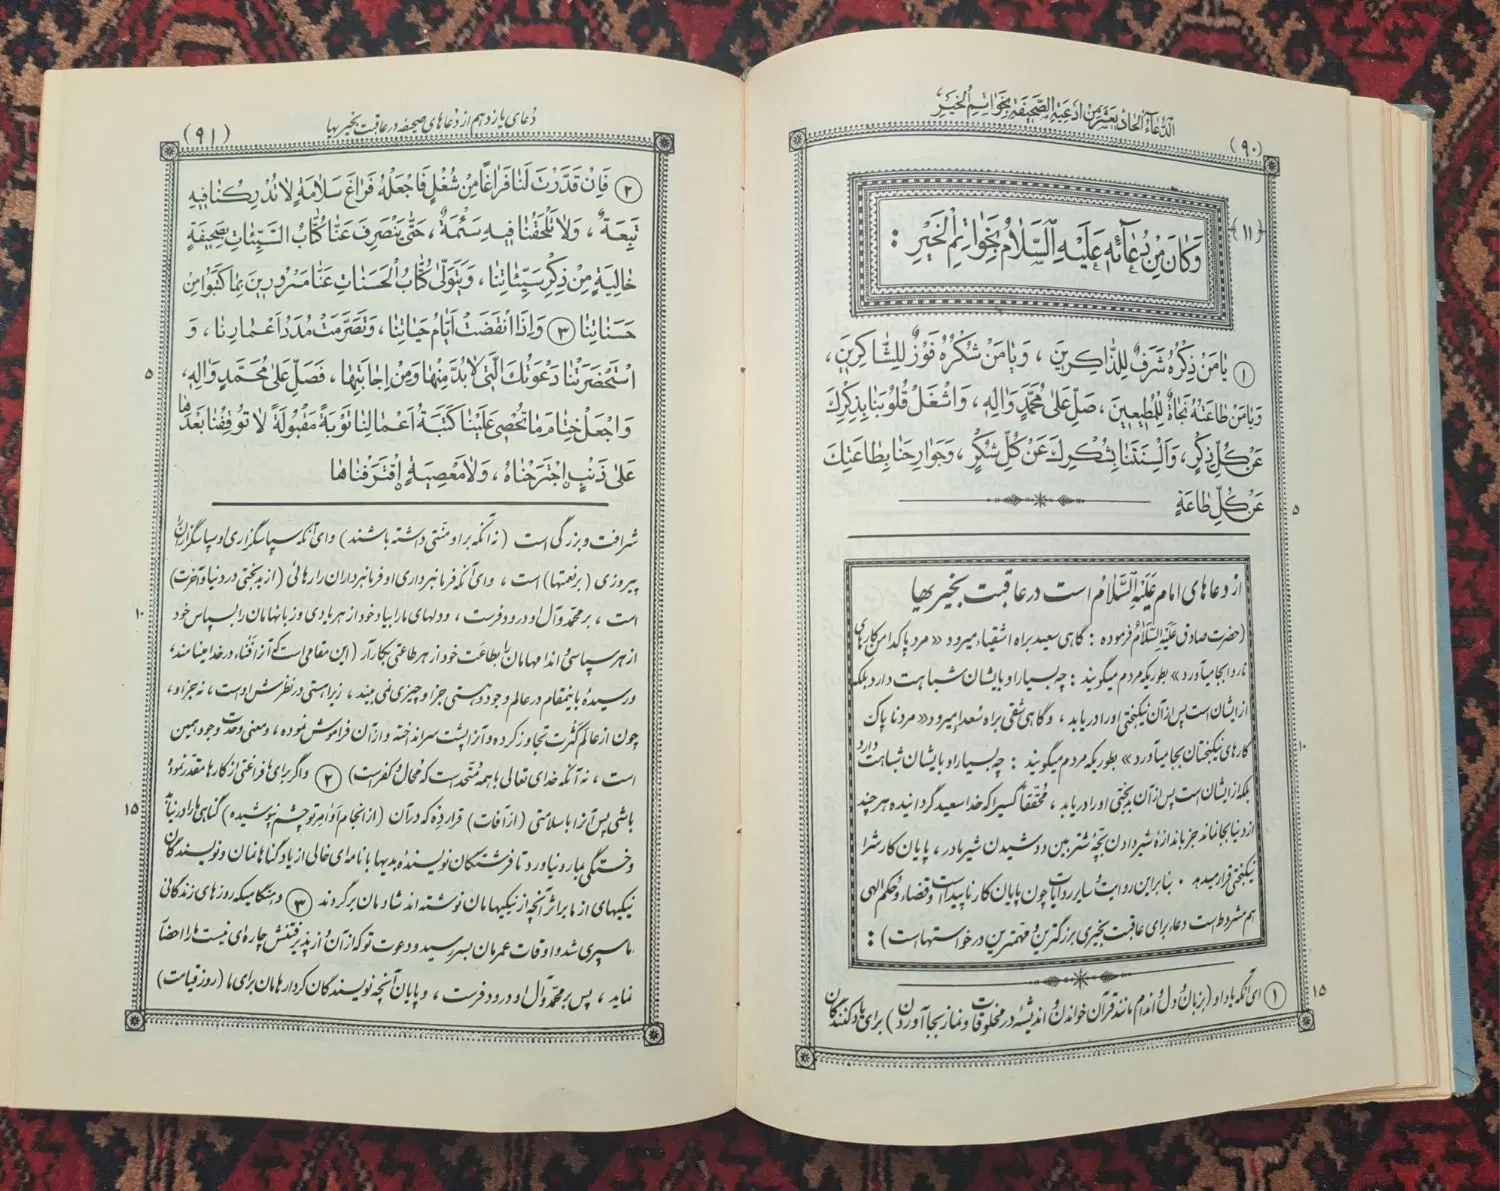 الدُّعَاءُ الْحَادِيَ عَشَرَ مِنْ أَدْعِيَةِ الصَّحِيفَةِ بِخَوَاتِمِ الْخَيْرِ
(٩٠)
﴿١١﴾
وَكَانَ مِنْ دُعَائِهِ عَلَيْهِ السَّلَامُ بِخَوَاتِمِ الْخَيْرِ :
١ يَا مَنْ ذِكْرُهُ شَرَفٌ لِلذَّاكِرِينَ ، وَيَا مَنْ شُكْرُهُ فَوْزٌ لِلشَّاكِرِينَ ،
وَيَا مَنْ طَاعَتُهُ نَجَاةٌ لِلْمُطِيعِينَ ، صَلِّ عَلَى مُحَمَّدٍ وَآلِهِ ، وَاشْغَلْ قُلُوبَنَا بِذِكْرِكَ
عَنْ كُلِّ ذِكْرٍ ، وَأَلْسِنَتَنَا بِشُكْرِكَ عَنْ كُلِّ شُكْرٍ ، وَجَوَارِحَنَا بِطَاعَتِكَ
عَنْ كُلِّ طَاعَةٍ
٥
از دعاهای امام عَلَیْهِ السَّلامُ است در عاقبت بخیریها
(حضرت صادق عَلَیْهِ السَّلامُ فرموده : گاهی سعید براه اشقیاء میرود «مرد پاکدامن کارهای
ناروا بجا میآورد» بطوریکه مردم میگویند : چه بسیار او بایشان شباهت دارد بلکه
از ایشان است پس از آن نیکبختی او را دریابد ، و گاهی شقی براه سُعداء میرود «مرد ناپاک
کارهای نیکبختان بجا میآورد» بطوریکه مردم میگویند : چه بسیار او بایشان شباهت دارد
١٠
بلکه از ایشان است پس از آن بدبختی او را دریابد ، مُحَقَّقاً کسیرا که خدا سعید گردانیده هر چند
از دنیا بجا نماند جز باندازهٔ شیر دادن بچّه شتر بین دو دوشیدن شیر مادر ، پایان کارش را
نیکبختی قرار میدهد . بنابر این روایت و سایر روایات چون پایان کار ناپیدا است و قضاء و حکم الهی
هم مشروط است دعاء برای عاقبت بخیری بزرگترین و مهمترین درخواستها است) :
١ ای آنکه یاد او (بزبان و دل و اندام مانند قرآن خواندن و اندیشه در مخلوقات و نماز بجا آوردن) برای یاد کنندگان
١٥
دعای یازدهم از دعاهای صحیفه در عاقبت بخیریها
(٩١)
٢ فَإِنْ قَدَّرْتَ لَنَا فَرَاغًا مِنْ شُغْلٍ فَاجْعَلْهُ فَرَاغَ سَلَامَةٍ لَا تُدْرِكُنَا فِيهِ
تَبِعَةٌ ، وَلَا تَلْحَقُنَا فِيهِ سَئْمَةٌ ، حَتَّى يَنْصَرِفَ عَنَّا كُتَّابُ السَّيِّئَاتِ بِصَحِيفَةٍ
خَالِيَةٍ مِنْ ذِكْرِ سَيِّئَاتِنَا ، وَيَتَوَلَّى كُتَّابُ الْحَسَنَاتِ عَنَّا مَسْرُورِينَ بِمَا كَتَبُوا مِنْ
حَسَنَاتِنَا ٣ وَإِذَا انْقَضَتْ أَيَّامُ حَيَاتِنَا ، وَتَصَرَّمَتْ مُدَدُ أَعْمَارِنَا ، وَ
اسْتَحْضَرَتْنَا دَعْوَتُكَ الَّتِي لَا بُدَّ مِنْهَا وَمِنْ إِجَابَتِهَا ، فَصَلِّ عَلَى مُحَمَّدٍ وَآلِهِ ،
٥
وَاجْعَلْ خِتَامَ مَا تُحْصِي عَلَيْنَا كَتَبَةُ أَعْمَالِنَا تَوْبَةً مَقْبُولَةً لَا تُوقِفُنَا بَعْدَهَا
عَلَى ذَنْبٍ اجْتَرَحْنَاهُ ، وَلَا مَعْصِيَةٍ اقْتَرَفْنَاهَا
شرافت و بزرگی است (نه آنکه بر او منّتی داشته باشند) و ای آنکه سپاسگزاری او سپاسگزاران را
پیروزی (بر نعمتها) است ، و ای آنکه فرمانبرداری او فرمانبرداران را رهائی (از بدبختی در دنیا و آخرت)
است ، بر محمّد و آل او درود فرست ، و دلهای ما را بیاد خود از هر یادی و زبانهامان را بسپاس خود
١٠
از هر سپاسی و اندامهامان را بطاعت خود از هر طاعتی بکار آر (این مقامی است که آنرا فَناء در خدا مینامند ،
و رسیدهٔ باینمقام در عالم وجود و هستی جز او چیزی نمی بیند ، زیرا هستی در نظرش اوست ، نه جز او ،
چون از عالم کثرت تجاوز کرده و آنرا پشت سر انداخته و از آن فراموش نموده ، و معنی وحدت وجود همین
است ، نه آنکه خدای تعالی با همه مُتَّحد است که مُحال و کفر است) ٢ و اگر برای ما فراغتی از کارها مقدّر نموده
باشی پس آنرا با سلامتی (از آفات) قرار ده که در آن (از انجام أوامر تو چشم پوشیده) گناهی ما را در نیابد
١٥
و خستگی بما رو نیاورد تا فرشتگان نویسندهٔ بدیها با نامه‌ای خالی از یاد گناهانمان و نویسندگان
نیکیهای از ما بر اثر آنچه از نیکیهامان نوشته اند شادمان برگردند ٣ و هنگامیکه روزهای زندگانی
ما سپری شد و اوقات عمرمان بسر رسید و دعوت تو که از آن و از پذیرفتنش چاره‌ای نیست ما را احضار
نماید ، پس بر محمّد و آل او درود فرست ، و پایان آنچه نویسندگان کردارهامان برای ما (روز قیامت)